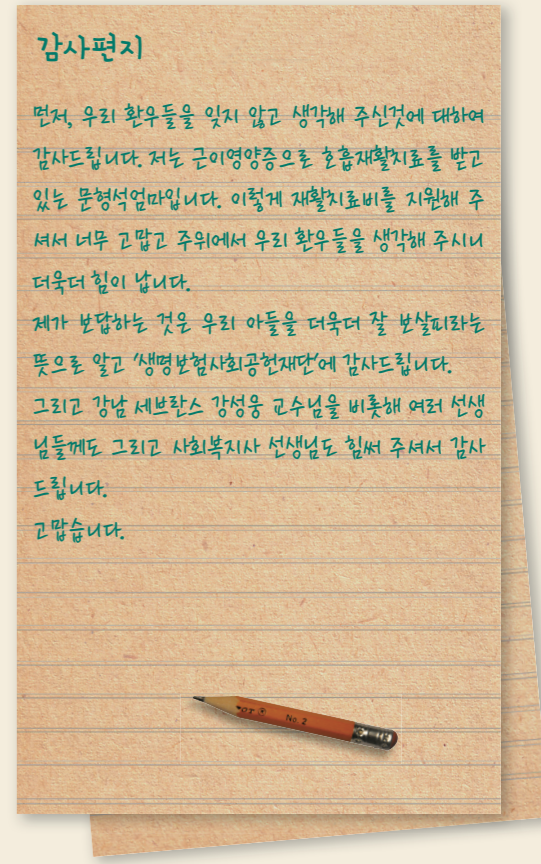 감사편지
먼저, 우리 환우들을 잊지 않고 생각해 주신것에 대하여
감사드립니다. 저는 근이영양증으로 호흡재활치료를 받고
있는 문형석엄마입니다. 이렇게 재활치료비를 지원해 주
셔서 너무 고맙고 주위에서 우리 환우들을 생각해 주시니
더욱더 힘이 납니다.
제가 보답하는 것은 우리 아들을 더욱더 잘 보살피라는
뜻으로 알고 '생명보험사회공헌재단'에 감사드립니다.
그리고 강남 세브란스 강성웅 교수님을 비롯해 여러 선생
님들께도 그리고 사회복지사 선생님도 힘써 주셔서 감사
드립니다.
고맙습니다.
No. 2